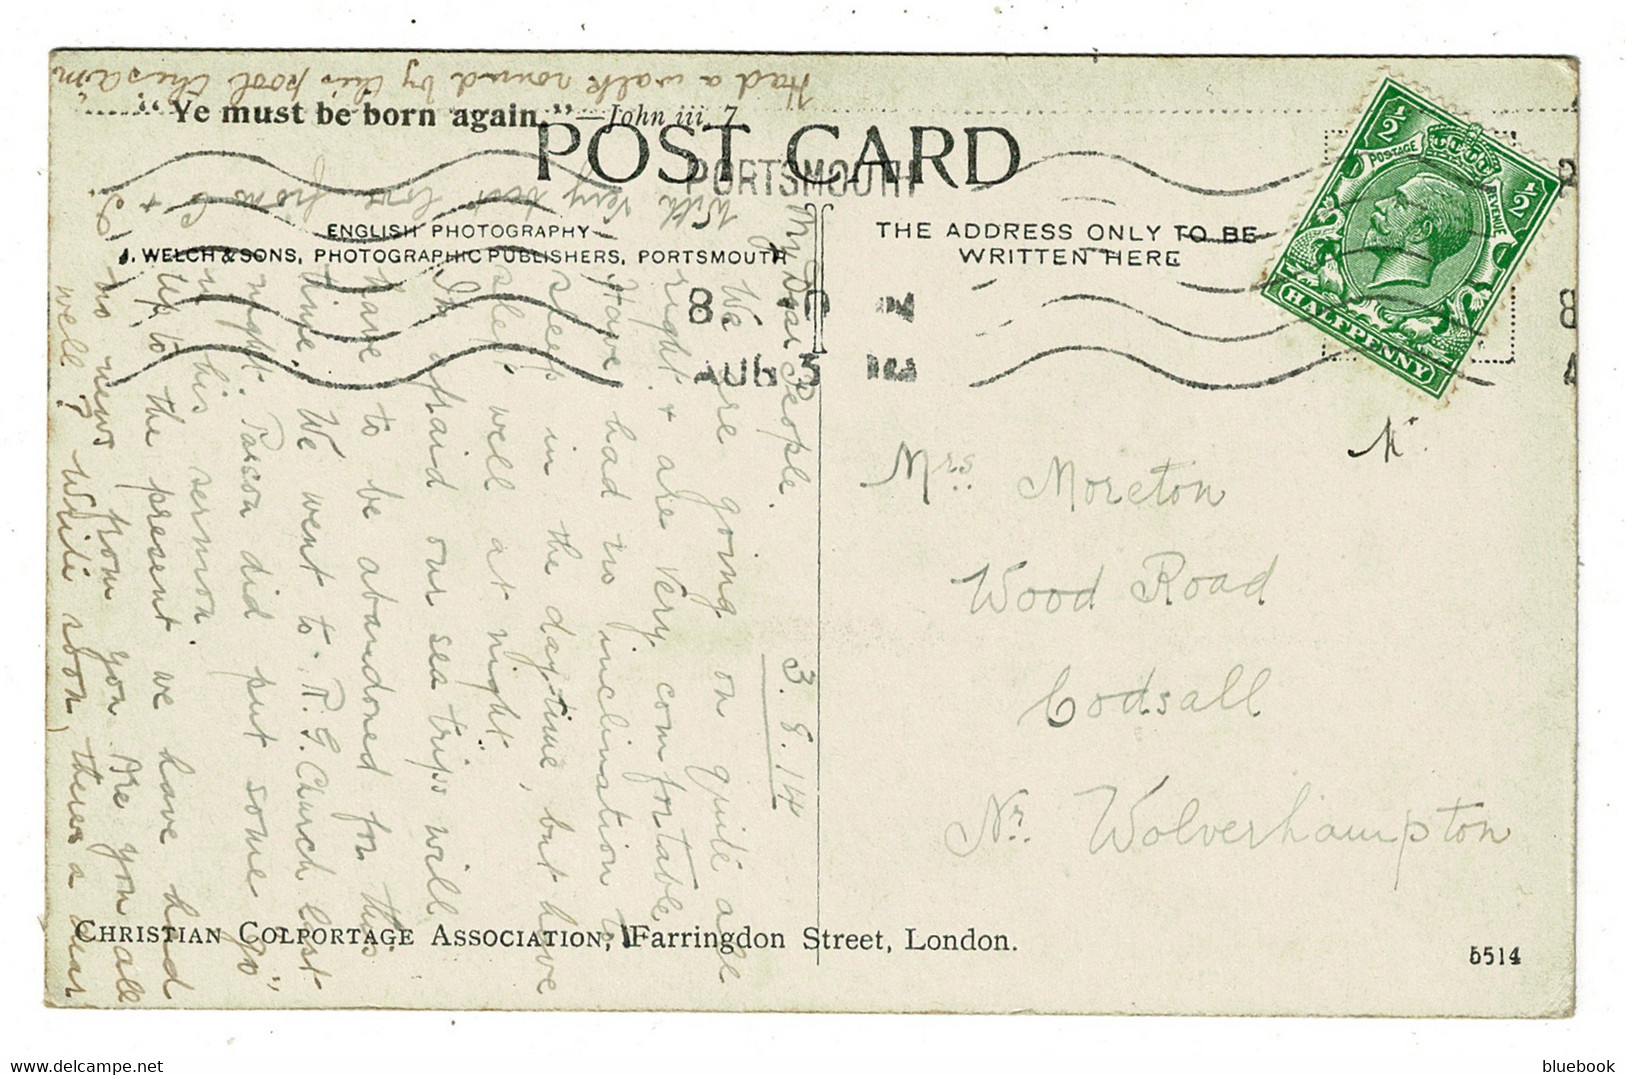 Had a walk round by this pool this a.m.
"Ye must be born again."—John iii. 7
POST CARD
PORTSMOUTH
ENGLISH PHOTOGRAPHY
J. WELCH & SONS, PHOTOGRAPHIC PUBLISHERS, PORTSMOUTH
THE ADDRESS ONLY TO BE
WRITTEN HERE
POSTAGE REVENUE
½ ½
HALFPENNY
8. PM
AUG 3
3.8.14
My Dear People.
We are going on quite all
right & are very comfortable
Have had no inclination to
sleep in the daytime, but have
slept well at night.
I'm afraid our sea trips will
have to be abandoned for this
time. We went to R. G. Church last
night. Parson did put some "go"
in his sermon.
Up to the present we have had
no news from you Are you all
well? Write soon, theres a dear
With very best love from
Mrs. Moreton
Wood Road
Codsall
Nr. Wolverhampton
CHRISTIAN COLPORTAGE ASSOCIATION, Farringdon Street, London.
5514
bluebook